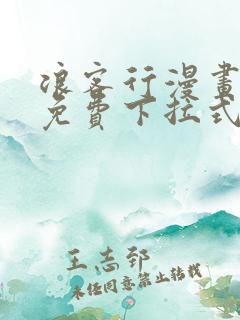 浪客行漫畫
免費下拉式
王志郅
未经同意禁止转载